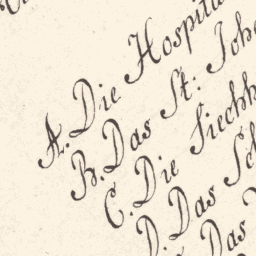 A. Die Hospita
B. Das St: Joh
C. Die Siechh
D. Das Sch
Das